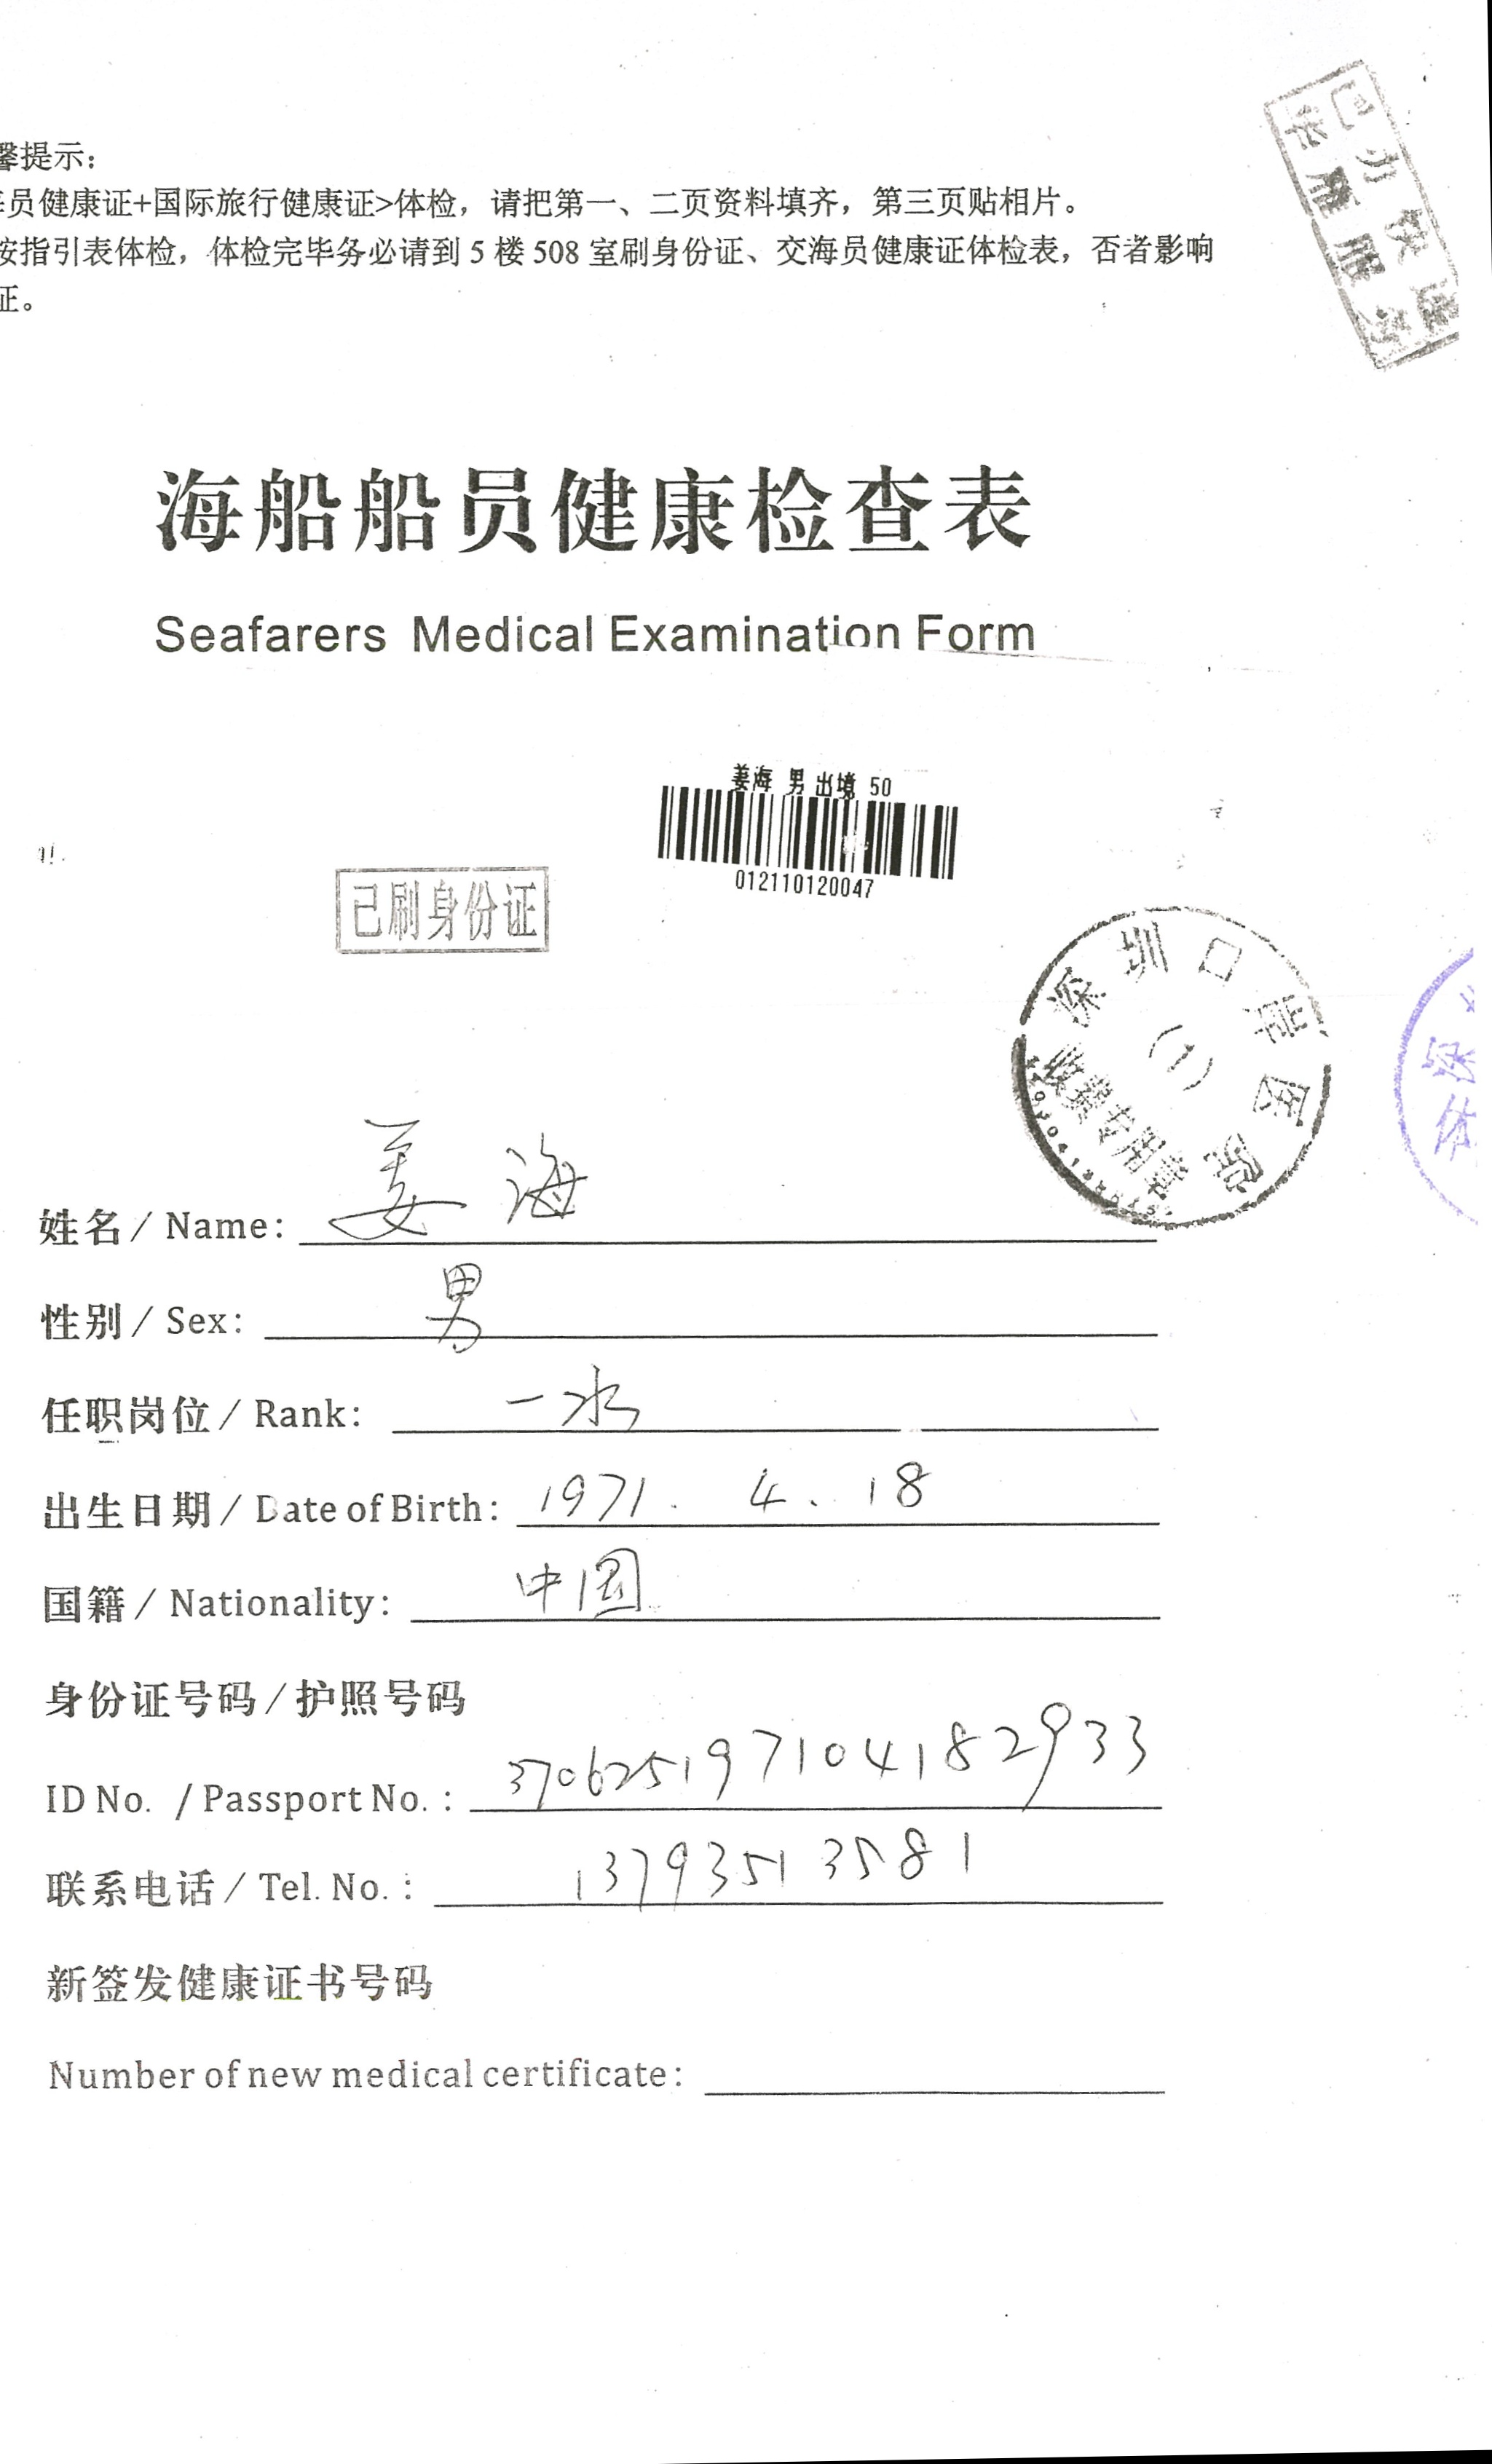 馨提示：
员健康证+国际旅行健康证>体检，请把第一、二页资料填齐，第三页贴相片。
按指引表体检，体检完毕务必请到 5 楼 508 室刷身份证、交海员健康证体检表，否者影响
证。
已办快递
华雁服务
海船船员健康检查表
Seafarers Medical Examination Form
姜海 男 出境 50
012110120047
已刷身份证
深圳口岸医院
(1)
收费专用章
姓名 / Name: 姜海
性别 / Sex: 男
任职岗位 / Rank: 一水
出生日期 / Date of Birth: 1971. 4. 18
国籍 / Nationality: 中国
身份证号码 / 护照号码
ID No. / Passport No. : 370625197104182933
联系电话 / Tel. No. : 13793513581
新签发健康证书号码
Number of new medical certificate: